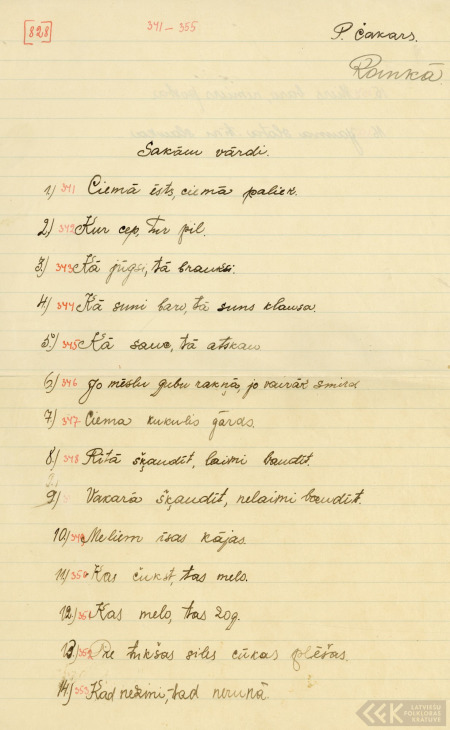 [828]
341 – 355
P. Čakars.
Rankā
Sakāmvārdi.
1) 341 Ciemā ēsts, ciemā paliek.
2) 342 Kur cep, tur pil.
3) 343 Kā jūgsi, tā brauksi.
4) 344 Kā suni baro, tā suns klausa.
5) 345 Kā sauc, tā atskan
6) 346 Jo mēslu gubu rakņā, jo vairāk smird
7) 347 Ciema kukulis gārds.
8) 348 Rītā šķaudīt, laimi baudīt.
9) Vakarā šķaudīt, nelaimi baudīt.
10) 349 Meliem īsas kājas.
11) 350 Kas čukst, tas melo.
12) 351 Kas melo, tas zog.
13) 352 Pie tukšas siles cūkas plēšas.
14) 353 Kad nezini, tad nerunā.
LATVIEŠU
FOLKLORAS
KRĀTUVE